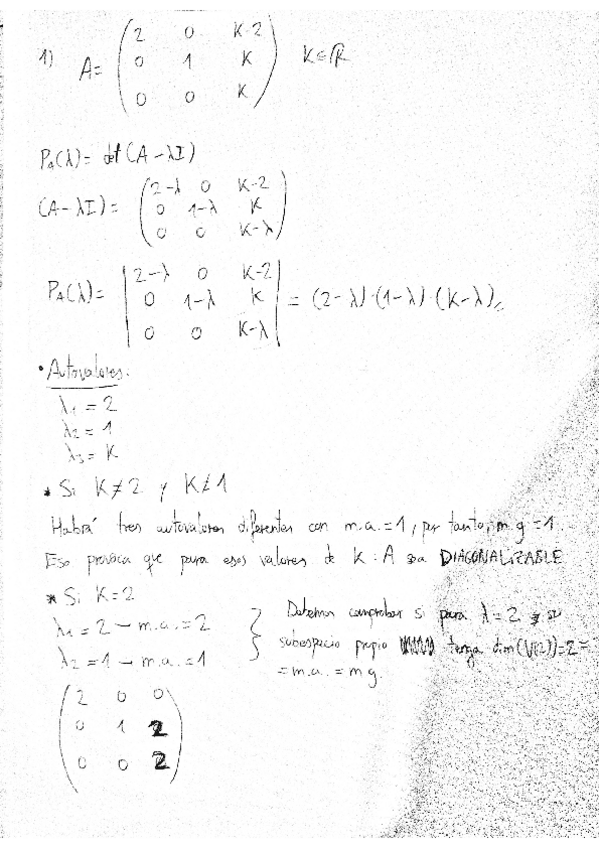 1) A = ( 2 0 K-2 ; 0 1 K ; 0 0 K ) K∈ℝ
P_A(λ) = det (A - λI)
(A - λI) = ( 2-λ 0 K-2 ; 0 1-λ K ; 0 0 K-λ )
P_A(λ) = | 2-λ 0 K-2 ; 0 1-λ K ; 0 0 K-λ | = (2-λ)·(1-λ)·(K-λ)
• Autovalores:
λ₁ = 2
λ₂ = 1
λ₃ = K
* Si K≠2 y K≠1
Habrá tres autovalores diferentes con m.a.=1, por tanto, m.g=1.
Eso provoca que para esos valores de K: A sea DIAGONALIZABLE
* Si K=2
λ₁ = 2 - m.a. = 2
λ₂ = 1 - m.a. = 1
} Debemos comprobar si para λ=2 su
subespacio propio tenga dim(V(2))=2=
= m.a. = m g.
( 2 0 0 ; 0 1 2 ; 0 0 2 )